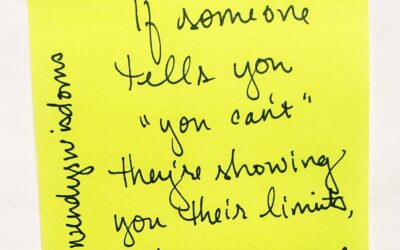 If someone
tells you
"you can't"
they're showing
you their limits,
wendyswisdoms